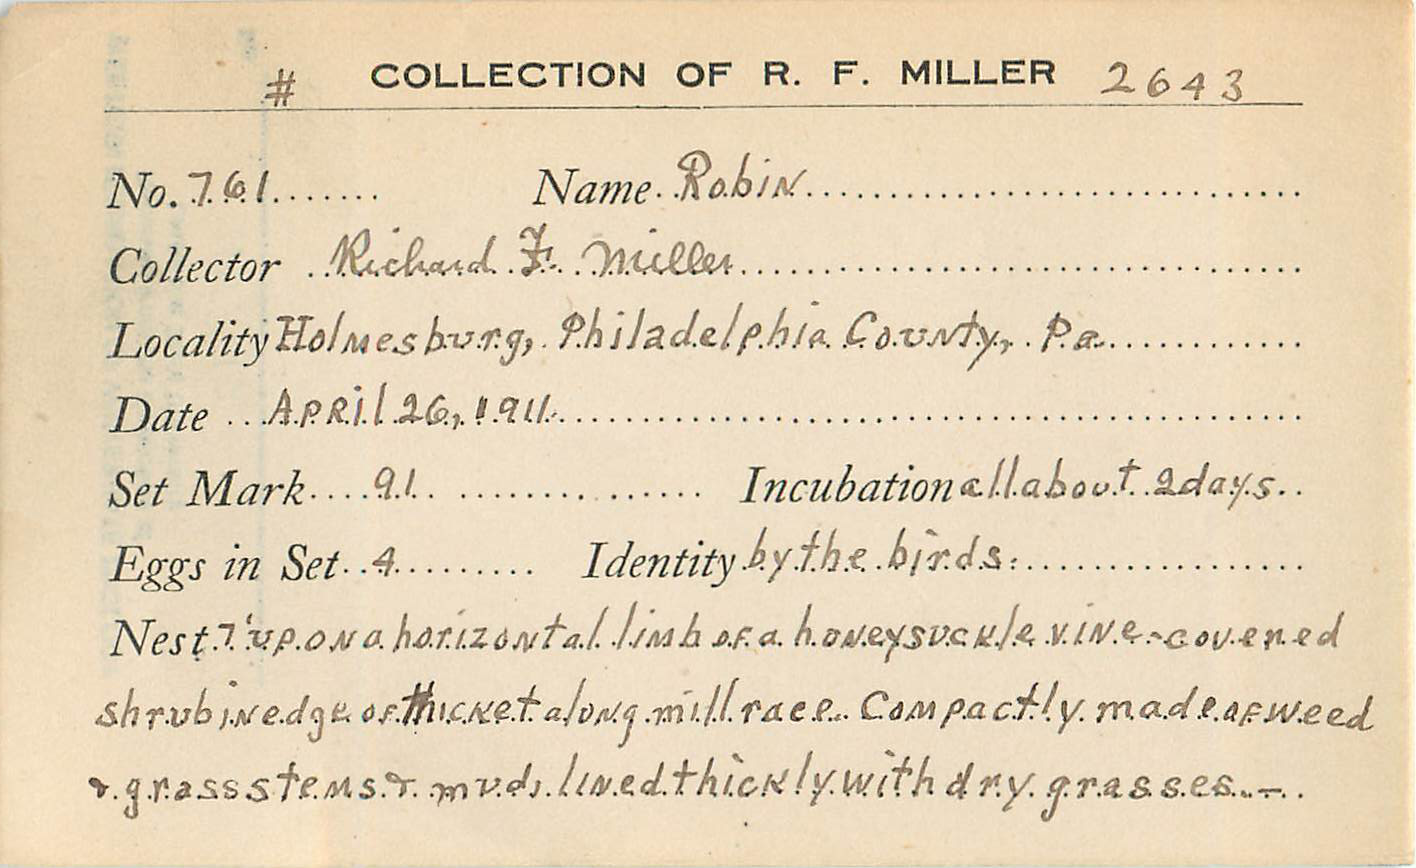 # COLLECTION OF R. F. MILLER 2643
No. 761 Name Robin
Collector Richard F. Miller
Locality Holmesburg, Philadelphia County, Pa.
Date April 26, 1911.
Set Mark 91. Incubation all about 2 days.
Eggs in Set 4 Identity by the birds.
Nest 7' up on a horizontal limb of a honeysuckle vine-covered
shrub in edge of thicket along mill race. Compactly made of weed
& grass stems & mud, lined thickly with dry grasses.-